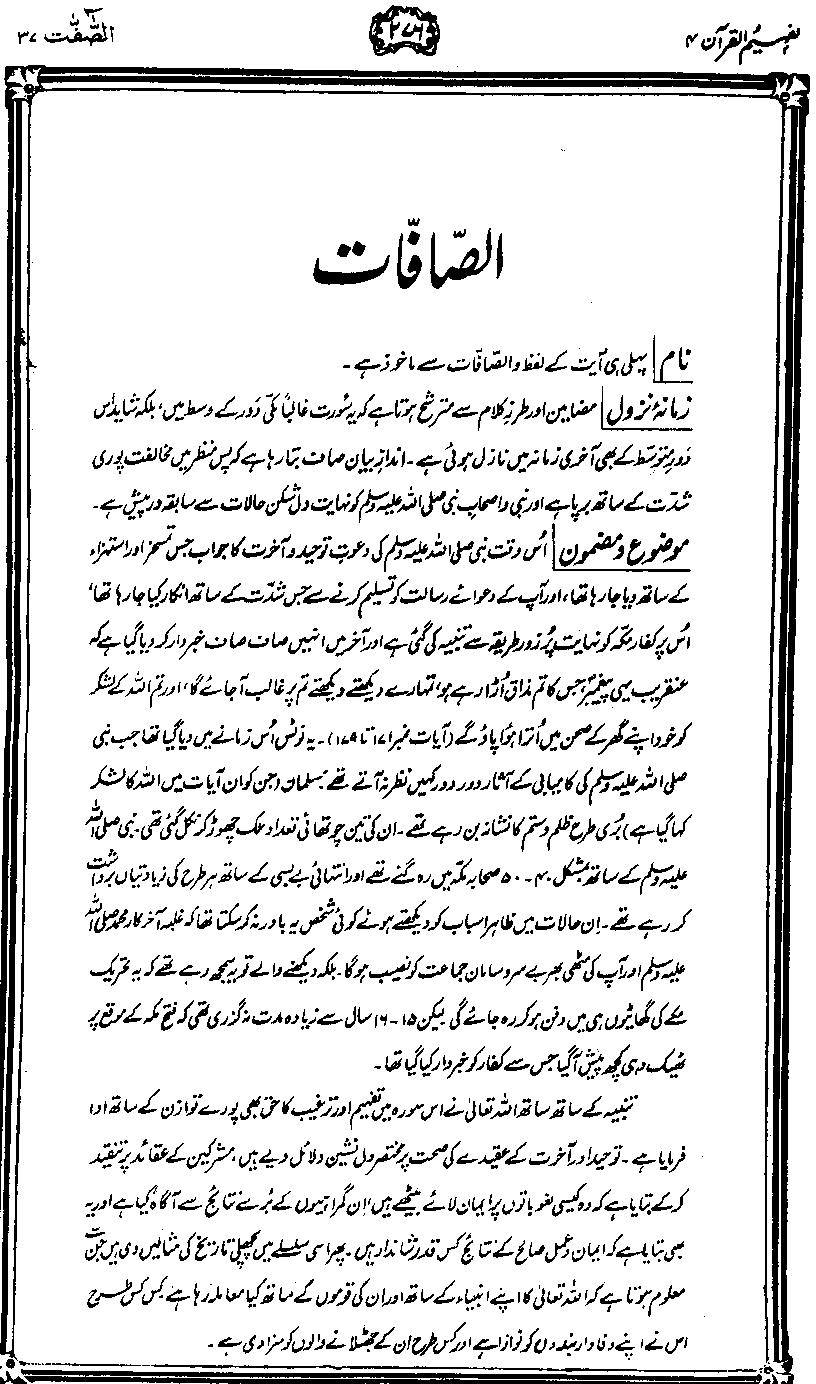 تفہیم القرآن ۴
۲۷۶
الصّٰفّٰت ۳۷
الصّافّات
نام پہلی ہی آیت کے لفظ والصّافّات سے ماخوذ ہے۔
زمانۂ نزول مضامین اور طرزِ کلام سے مترشح ہوتا ہے کہ یہ سُورت غالباً مکّی دَور کے وسط میں، بلکہ شاید اس
دَورِ متوسّط کے بھی آخری زمانہ میں نازل ہوئی ہے۔ اندازِ بیان صاف بتا رہا ہے کہ پس منظر میں مخالفت پوری
شدّت کے ساتھ برپا ہے اور نبی و اصحابِ نبی صلی اللہ علیہ وسلم کو نہایت دل شکن حالات سے سابقہ درپیش ہے۔
موضوع و مضمون اُس وقت نبی صلی اللہ علیہ وسلم کی دعوتِ توحید و آخرت کا جواب جس تمسخر اور استہزاء
کے ساتھ دیا جا رہا تھا، اور آپ کے دعوائے رسالت کو تسلیم کرنے سے جس شدّت کے ساتھ انکار کیا جا رہا تھا،
اُس پر کفارِ مکّہ کو نہایت پُر زور طریقہ سے تنبیہ کی گئی ہے اور آخر میں انہیں صاف صاف خبردار کر دیا گیا ہے کہ
عنقریب یہی پیغمبر، جس کا تم مذاق اُڑا رہے ہو، تمہارے دیکھتے دیکھتے تم پر غالب آجائے گا، اور تم اللہ کے لشکر
کو خود اپنے گھر کے صحن میں اُترا ہوا پاؤ گے (آیات نمبر ۱۷۱ تا ۱۷۹)۔ یہ نوٹس اُس زمانے میں دیا گیا تھا جب نبی
صلی اللہ علیہ وسلم کی کامیابی کے آثار دور دور کہیں نظر نہ آتے تھے۔ مسلمان (جن کو ان آیات میں اللہ کا لشکر
کہا گیا ہے) بُری طرح ظلم و ستم کا نشانہ بن رہے تھے۔ ان کی تین چوتھائی تعداد ملک چھوڑ کر نکل گئی تھی۔ نبی صلی اللہ
علیہ وسلم کے ساتھ بمشکل ۴۰-۵۰ صحابہ مکّہ میں رہ گئے تھے اور انتہائی بے بسی کے ساتھ ہر طرح کی زیادتیاں برداشت
کر رہے تھے۔ اِن حالات میں ظاہر اسباب کو دیکھتے ہوئے کوئی شخص یہ باور نہ کر سکتا تھا کہ غلبہ آخر کار محمد صلی اللہ
علیہ وسلم اور آپ کی مٹھی بھر بے سروسامان جماعت کو نصیب ہوگا۔ بلکہ دیکھنے والے تو یہ سمجھ رہے تھے کہ یہ تحریک
مکّے کی گھاٹیوں ہی میں دفن ہو کر رہ جائے گی۔ لیکن ۱۵-۱۶ سال سے زیادہ مدت نہ گزری تھی کہ فتح مکہ کے موقع پر
ٹھیک وہی کچھ پیش آگیا جس سے کفار کو خبردار کیا گیا تھا۔
تنبیہ کے ساتھ ساتھ اللہ تعالیٰ نے اس سورہ میں تفہیم اور ترغیب کا حق بھی پورے توازن کے ساتھ ادا
فرمایا ہے۔ توحید اور آخرت کے عقیدے کی صحت پر مختصر دل نشین دلائل دیے ہیں، مشرکین کے عقائد پر تنقید
کرکے بتایا ہے کہ وہ کیسی لغو باتوں پر ایمان لائے بیٹھے ہیں، اِن گمراہیوں کے بُرے نتائج سے آگاہ کیا ہے اور یہ
بھی بتایا ہے کہ ایمان و عمل صالح کے نتائج کس قدر شاندار ہیں۔ پھر اسی سلسلے میں پچھلی تاریخ کی مثالیں دی ہیں جن سے
معلوم ہوتا ہے کہ اللہ تعالیٰ کا اپنے انبیاء کے ساتھ اور ان کی قوموں کے ساتھ کیا معاملہ رہا ہے، کس کس طرح
اس نے اپنے وفادار بندوں کو نوازا ہے اور کس طرح ان کے جھٹلانے والوں کو سزا دی ہے۔